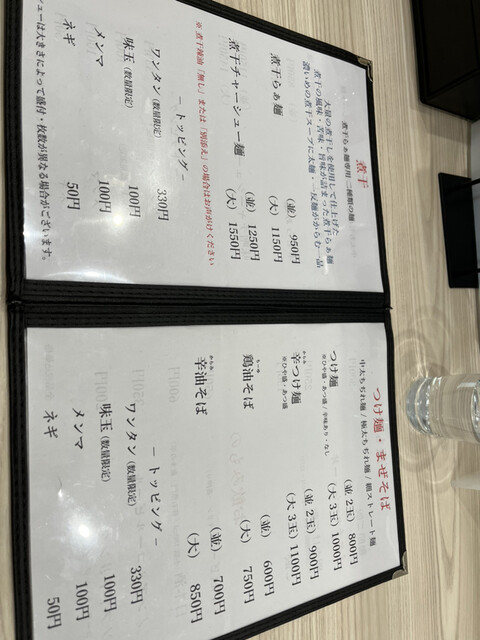 煮干
煮干らぁ麺専用 二種類の麺
大量の煮干しを使用して仕上げた
煮干の風味・苦味・旨味が詰まった煮干らぁ麺
濃いめの煮干スープに太麺・一反麺がからむ一品
煮干らぁ麺 (並) 950円
(大) 1150円
煮干チャーシュー麺 (並) 1250円
(大) 1550円
※ 煮干辣油「無し」または「別添え」の場合はお声がけください
− トッピング −
ワンタン (数量限定) 330円
味玉 (数量限定) 100円
メンマ 100円
ネギ 50円
シューは大きさによって盛付・枚数が異なる場合がございます。
つけ麺・まぜそば
中太ちぢれ麺 / 極太ちぢれ麺 / 細ストレート麺
つけ麺 (並 2玉) 800円
※ひや盛・あつ盛 / 辛味あり・なし (大 3玉) 1000円
辛つけ麺 (並 2玉) 900円
※ひや盛・あつ盛 (大 3玉) 1100円
鶏油そば (並) 600円
(大) 750円
辛油そば (並) 700円
(大) 850円
− トッピング −
ワンタン (数量限定) 330円
味玉 (数量限定) 100円
メンマ 100円
ネギ 50円